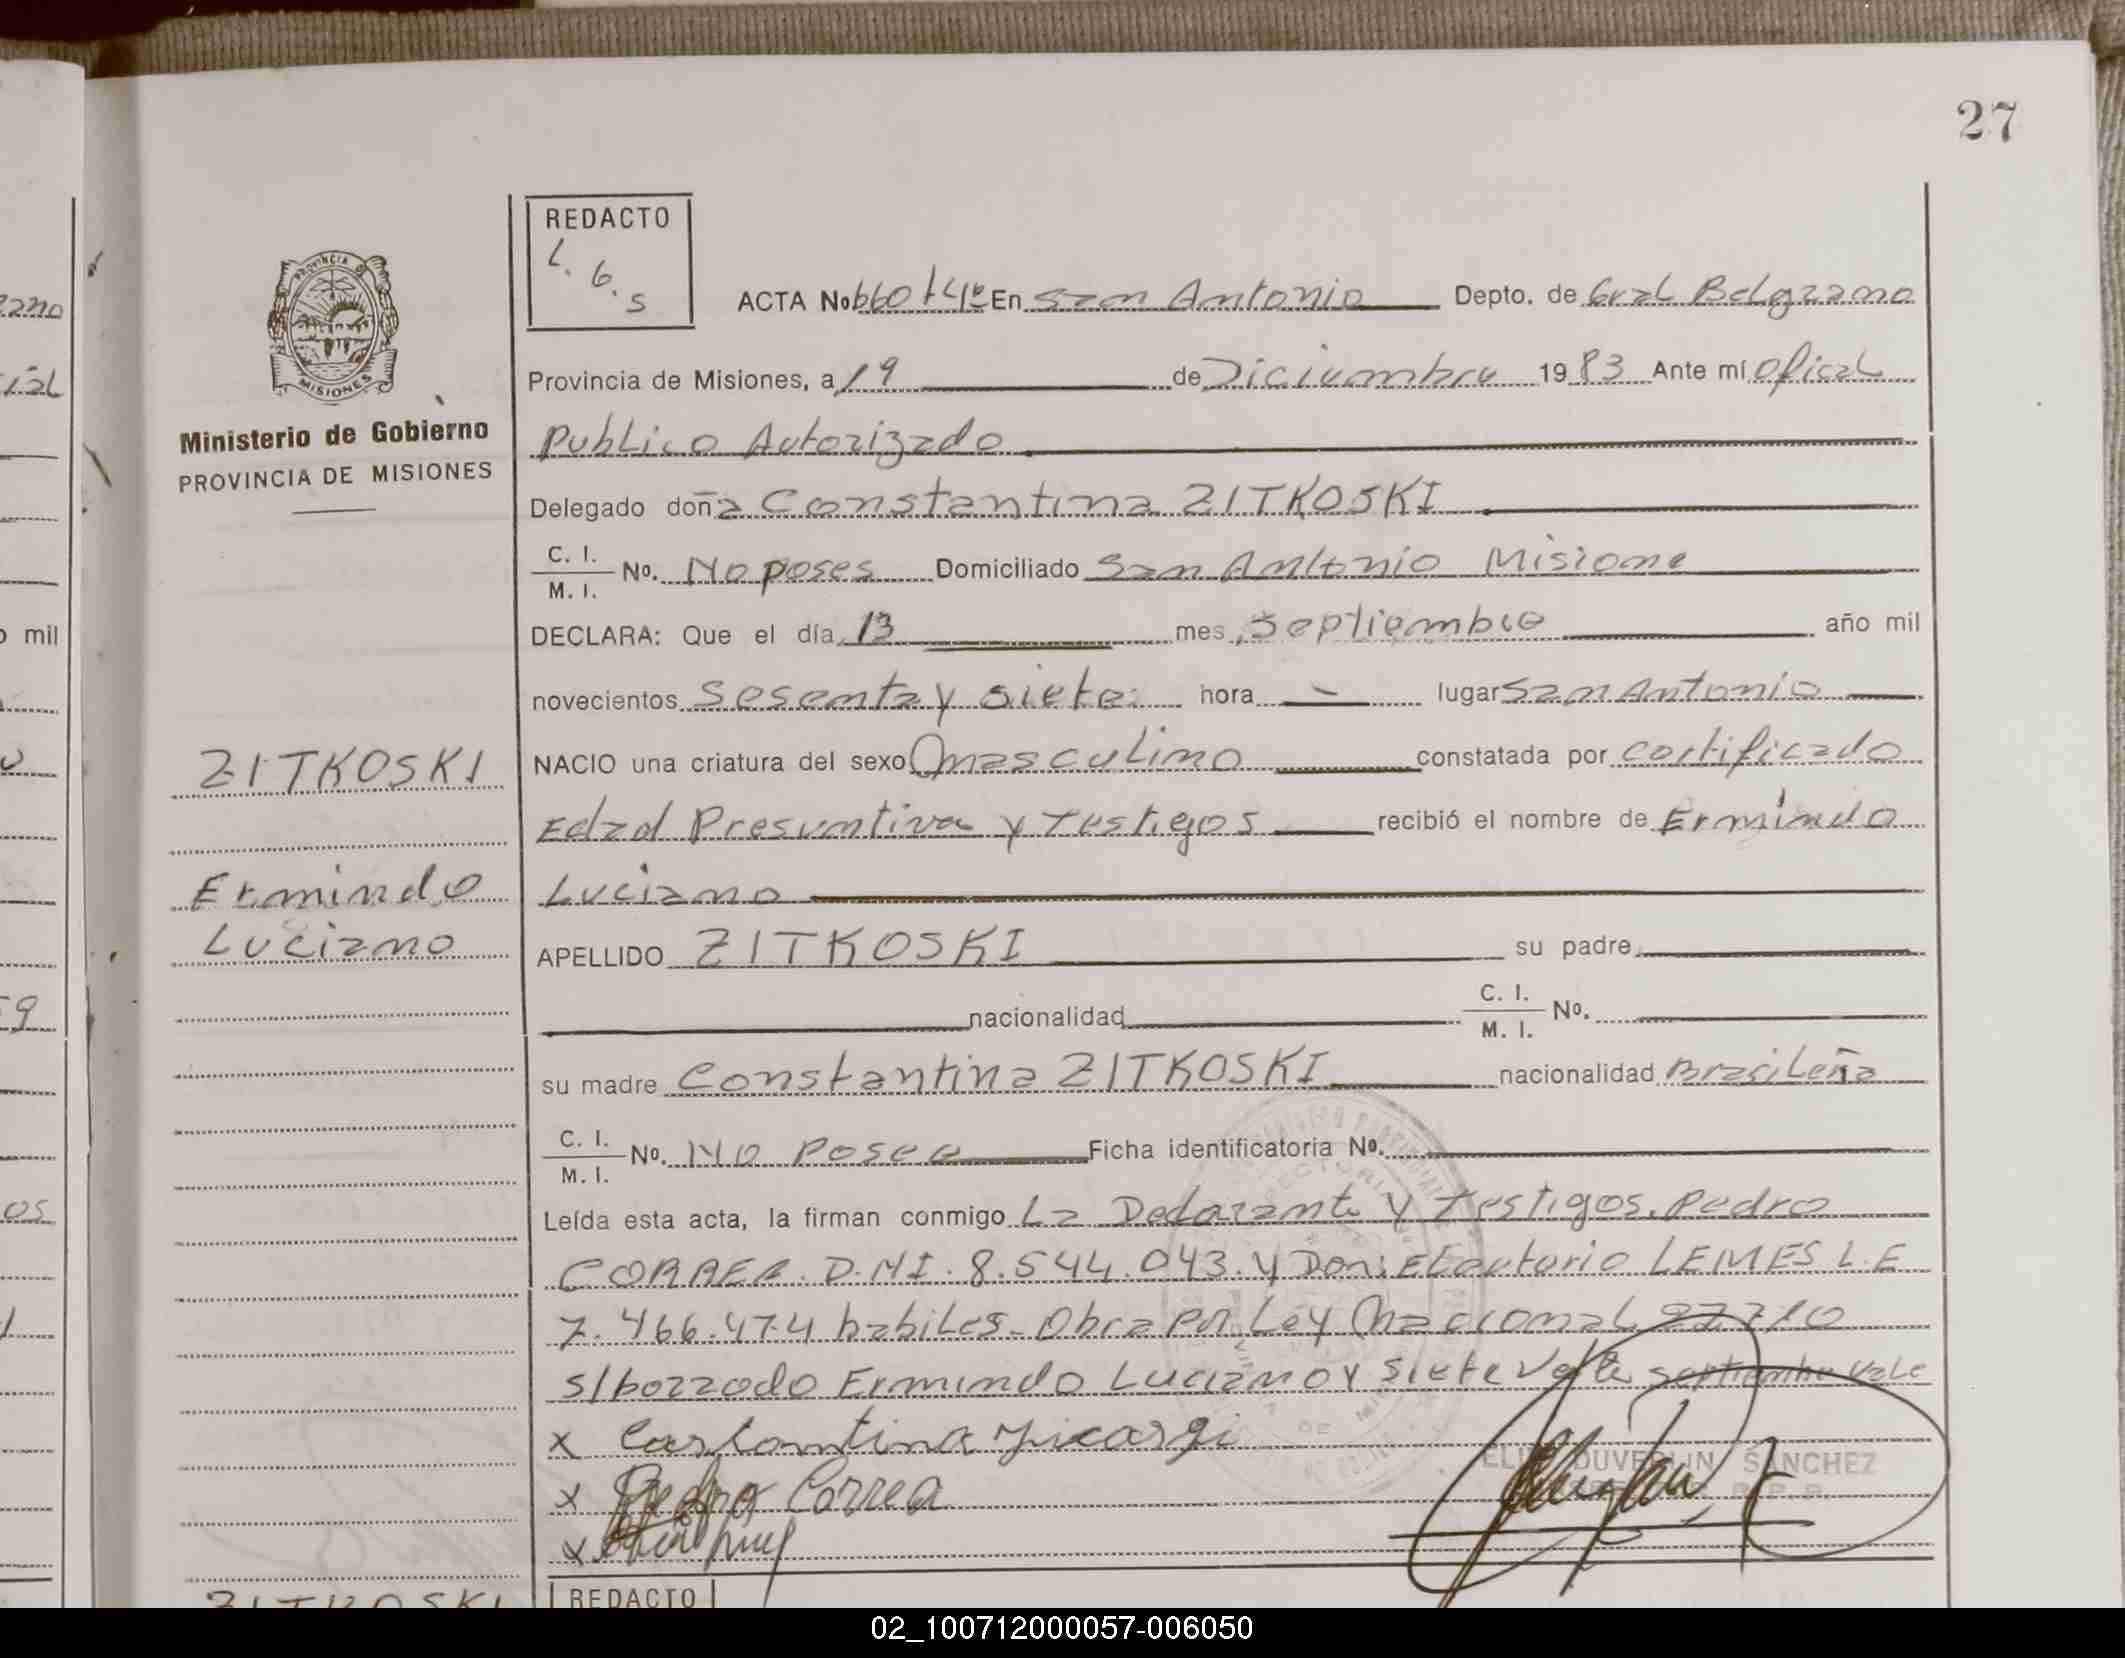 27
REDACTO
L. G. S
ACTA No 660 t 4º En San Antonio Depto. de Gral Belgrano
Provincia de Misiones, a 19 de Diciembre 1983 Ante mí oficial
Publico Autorizado
Delegado doña Constantina ZITKOSKI
C. I.
M. I. No. No poses Domiciliado San Antonio Misione
DECLARA: Que el día 13 mes Septiembre año mil
novecientos Sesenta y siete: hora - lugar San Antonio
NACIO una criatura del sexo masculino constatada por certificado
Edad Presuntiva y testigos recibió el nombre de Ermindo
Luciano
APELLIDO ZITKOSKI su padre
nacionalidad C. I.
M. I. No.
su madre Constantina ZITKOSKI nacionalidad Brasileña
C. I.
M. I. No. No Posee Ficha identificatoria No.
Leída esta acta, la firman conmigo La Declarante y testigos. Pedro
CORREA. D.NI. 8.544.043. y Don: Eleuterio LEMES L.E
7.466.474 habiles. Obra por Ley Nacional
s/borrado Ermindo Luciano y siete Vale septiembre vale
x
x Pedro Correa
x
ELI DUVERLIN SANCHEZ
PROVINCIA DE
MISIONES
Ministerio de Gobierno
PROVINCIA DE MISIONES
ZITKOSKI
Ermindo
Luciano
ZITKOSKI
REDACTO
mil
os
02_100712000057-006050